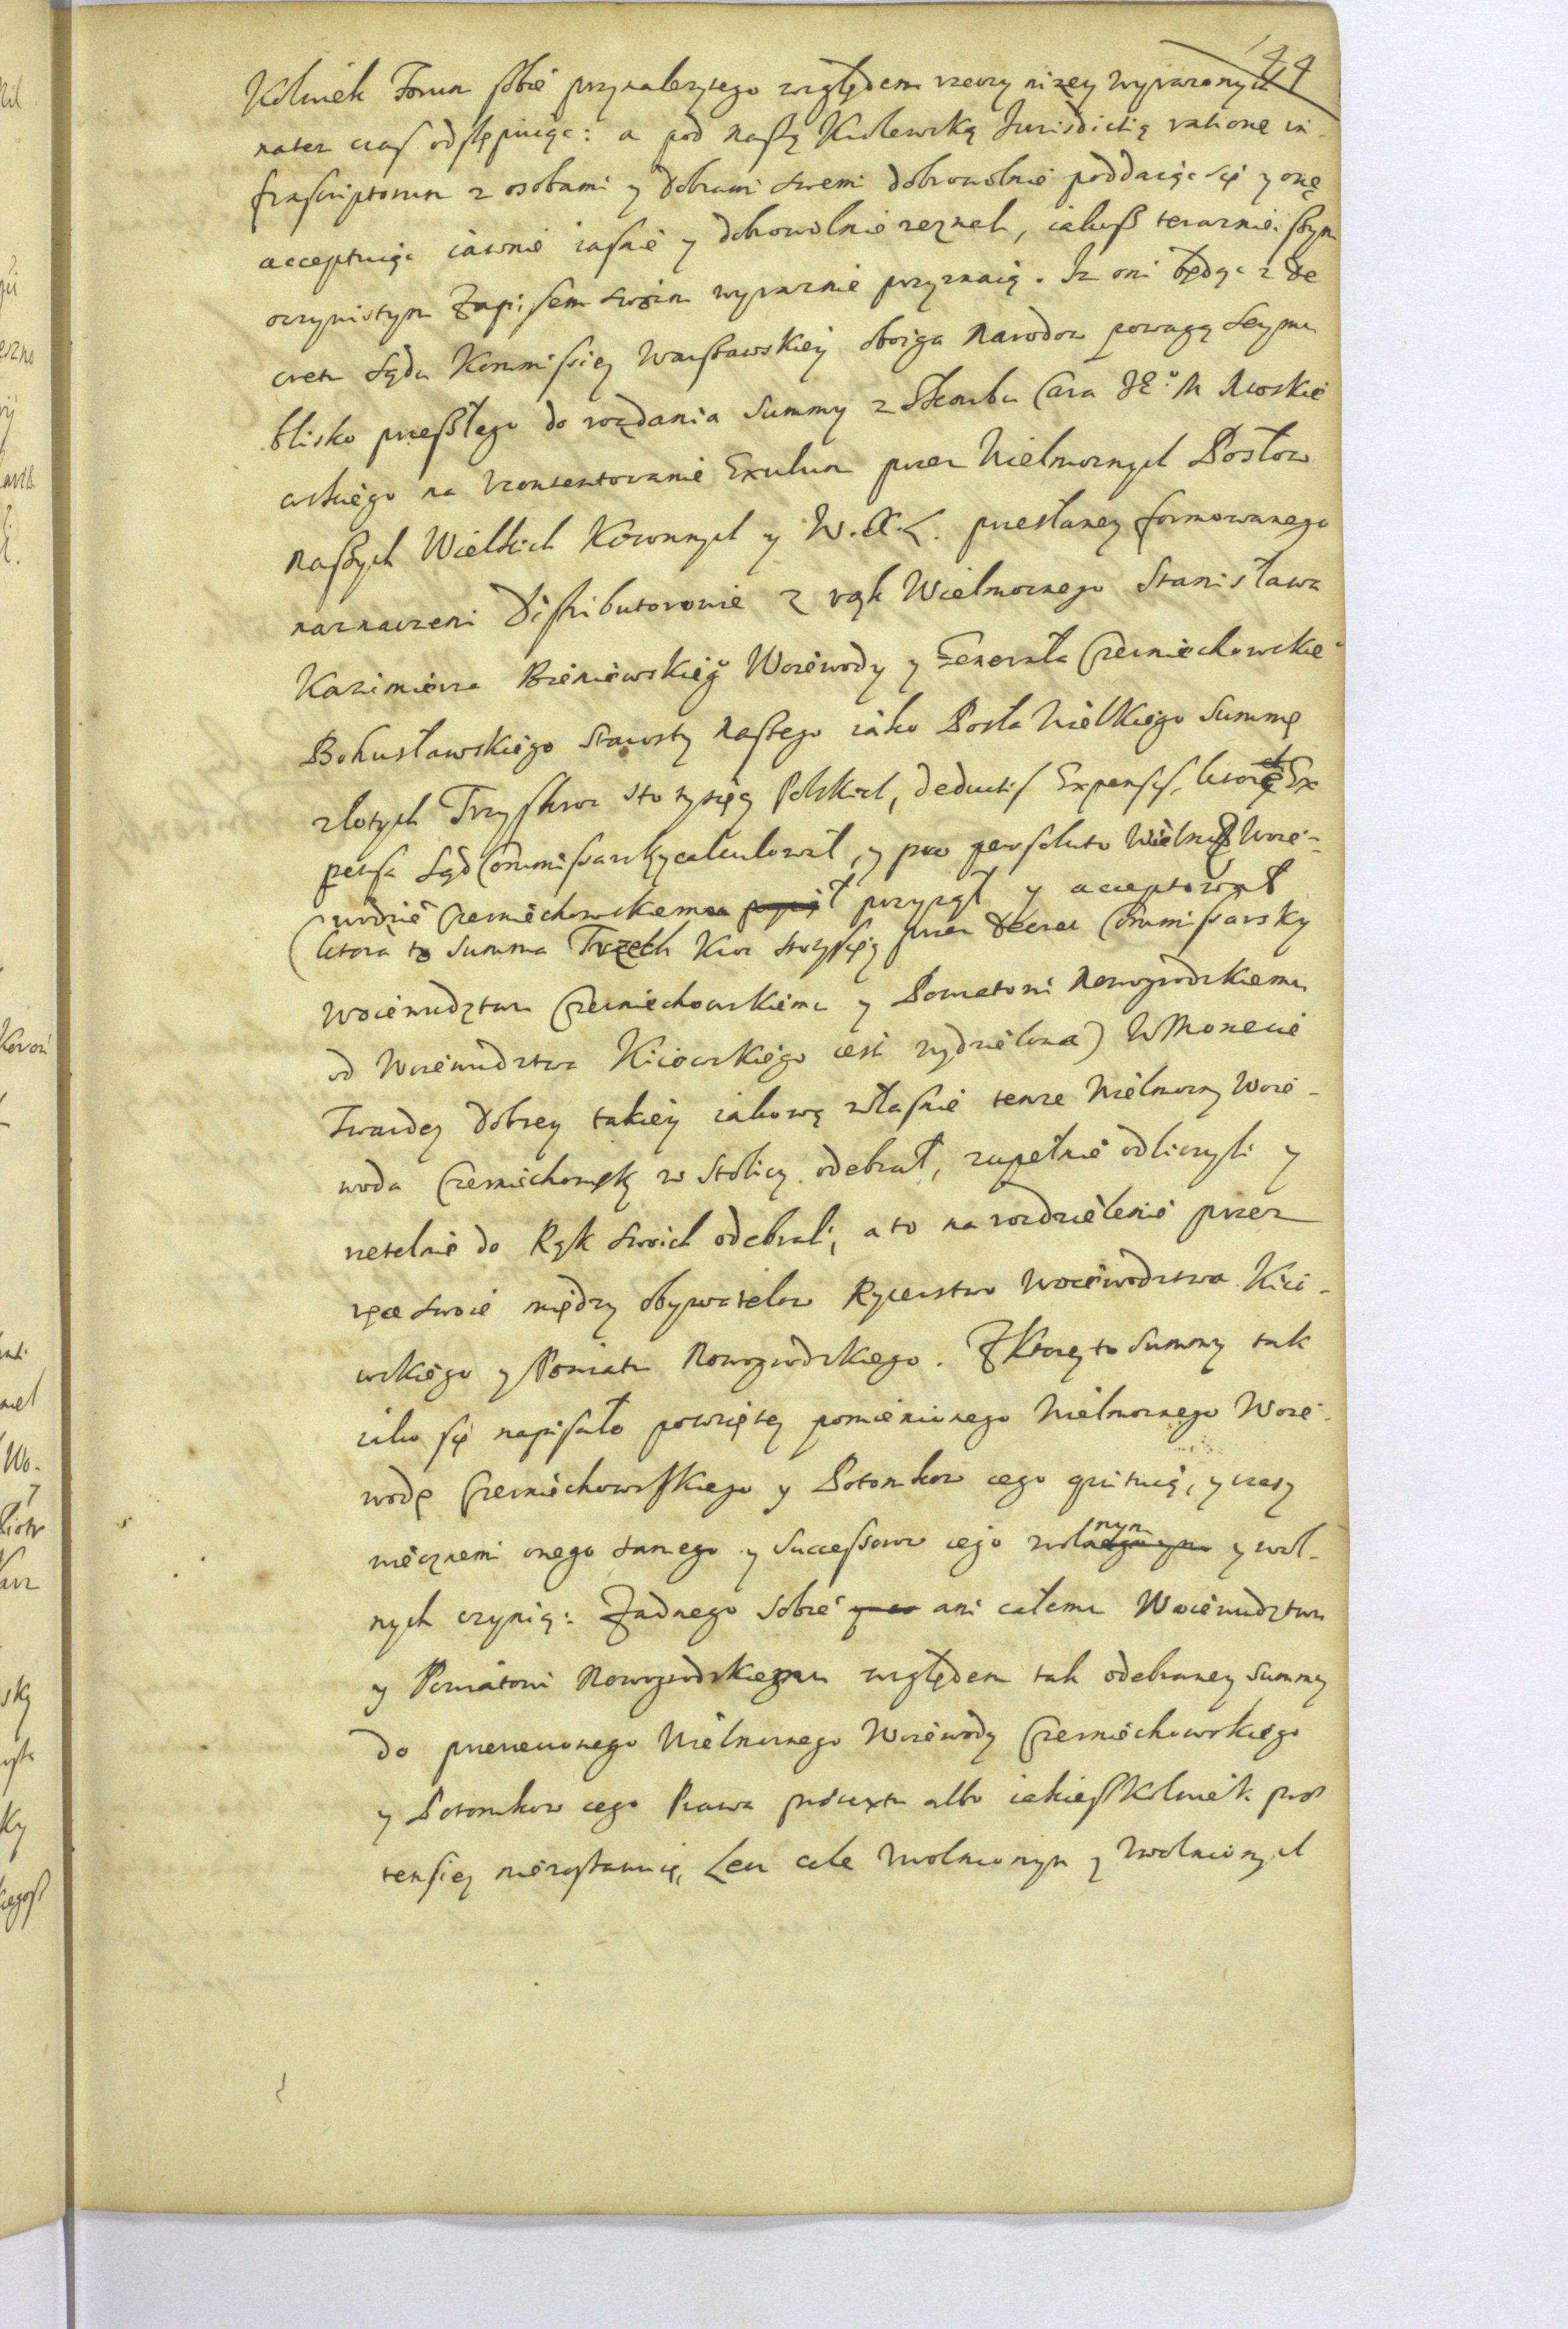 144
Kolwiek Forum sobie przynalezytego względem rzeczy nizey wyrazonych
naten czas odstępuiąc: a pod naszą Krolewską Jurisdictią ratione in-
frascriptorum z osobami y dobrami swemi dobrowolnie poddaiąc się y onę
acceptuiąc iawnie iasnie y dobrowolnie zeznali, iakosz teraznieiszym
oczywistym Zapisem swoim wyraznie przyznaią. Iz oni będąc z De
cretu Sądu Kommissiey Warszawskiey oboiga Narodow powagą Seymu
blisko przeszłego do rozdania Summy z Skarbu Cara JE° M Moskie
wskiego na ukontentowanie Exulum przez Wielmoznych Posłow
naszych Wielkich Koronnych y W.X.L. przesłaney formowanego
naznaczeni Distributorowie z rąk Wielmoznego Stanisława
Kazimierza Bieniewskieg° Woiewody y Generała Czerniechowskie°
Bohusławskiego Starosty naszego iako Posła Wielkiego Summę
złotych Trzykroc sto tysięcy Polskich, deductis Expensis, ktore Ex
pensa Sąd Commissarsky calculował, y pro persoluto Wielm° Woie-
wodzie Czerniechowskiemu przyiął y acceptował
(ktora to Summa Trzech Kroc stotysięcy przez Decret Commissarsky
Woiewudztwu Czerniechowskiemu y Powiatowi Nowogrodzkiemu
od Woiewudztwa Kiiowskiego iest wydzielona) W Monecie
Twardey dobrey takiey iakową własnie tenze Wielmozny Woie-
woda Czerniechowsky w Stolicy odebrał, zupełnie odliczyli y
rzetelnie do Rąk swoich odebrali, a to na rozdzielenie przez
ręce swoie między obywatelow Rycerstwo Woiewodztwa Kiio-
wskiego y Powiatu Nowogrodzkiego. Z Ktorey to Summy tak
iako się napisało powziętey pomienionego Wielmoznego Woie-
wodę Czerniechowskiego y Potomkow iego quituią, y czasy
wiecznemi onego samego y Successorow iego wolnym y wol-
nych czynią: Zadnego sobie ani całemu Woiewudztwu
y Powiatowi Nowogrodzkiemu względem tak odebraney Summy
do przerzeczonego Wielmoznego Woiewody Czerniechowskiego
y Potomkow iego Prawa praetextu albo iakieyszKolwiek prae
tensiey niezostawuią, Lecz cale uwolnionym y uwolnionych